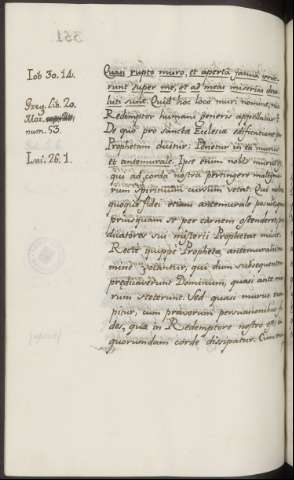 Iob 30. 14.
Greg. Lib. 20.
Mor.
num. 53.
Isai. 26. 1.
Quasi rupto muro, et aperta janua irrue-
runt super me, et ad meas miserias devo-
luti sunt. Quid hoc loco muri nomine, nisi
Redemptor humani generis appellatur?
De quo pro sancta Ecclesia edificatione per
Prophetam dicitur: Ponetur in ea murus
et antemurale. Ipse enim nobis murus est,
qui ad corda nostra pertingere malignorum
spirituum cursum vetat. Qui nobis
quoque fidei etiam antemurale posuit, quia
priusquam se per carnem ostenderet, prae-
dicatores sui misterii Prophetas misit.
Recte quippe Prophetae antemuralis no-
mine vocantur, qui dum subsequentem
predicaverunt Dominum, quasi ante mu-
rum steterunt. Sed quasi murus rum-
pitur, cum pravorum persuasionibus fi-
des, quae in Redemptore nostro est, in
quorumdam corde dissipatur. Cum